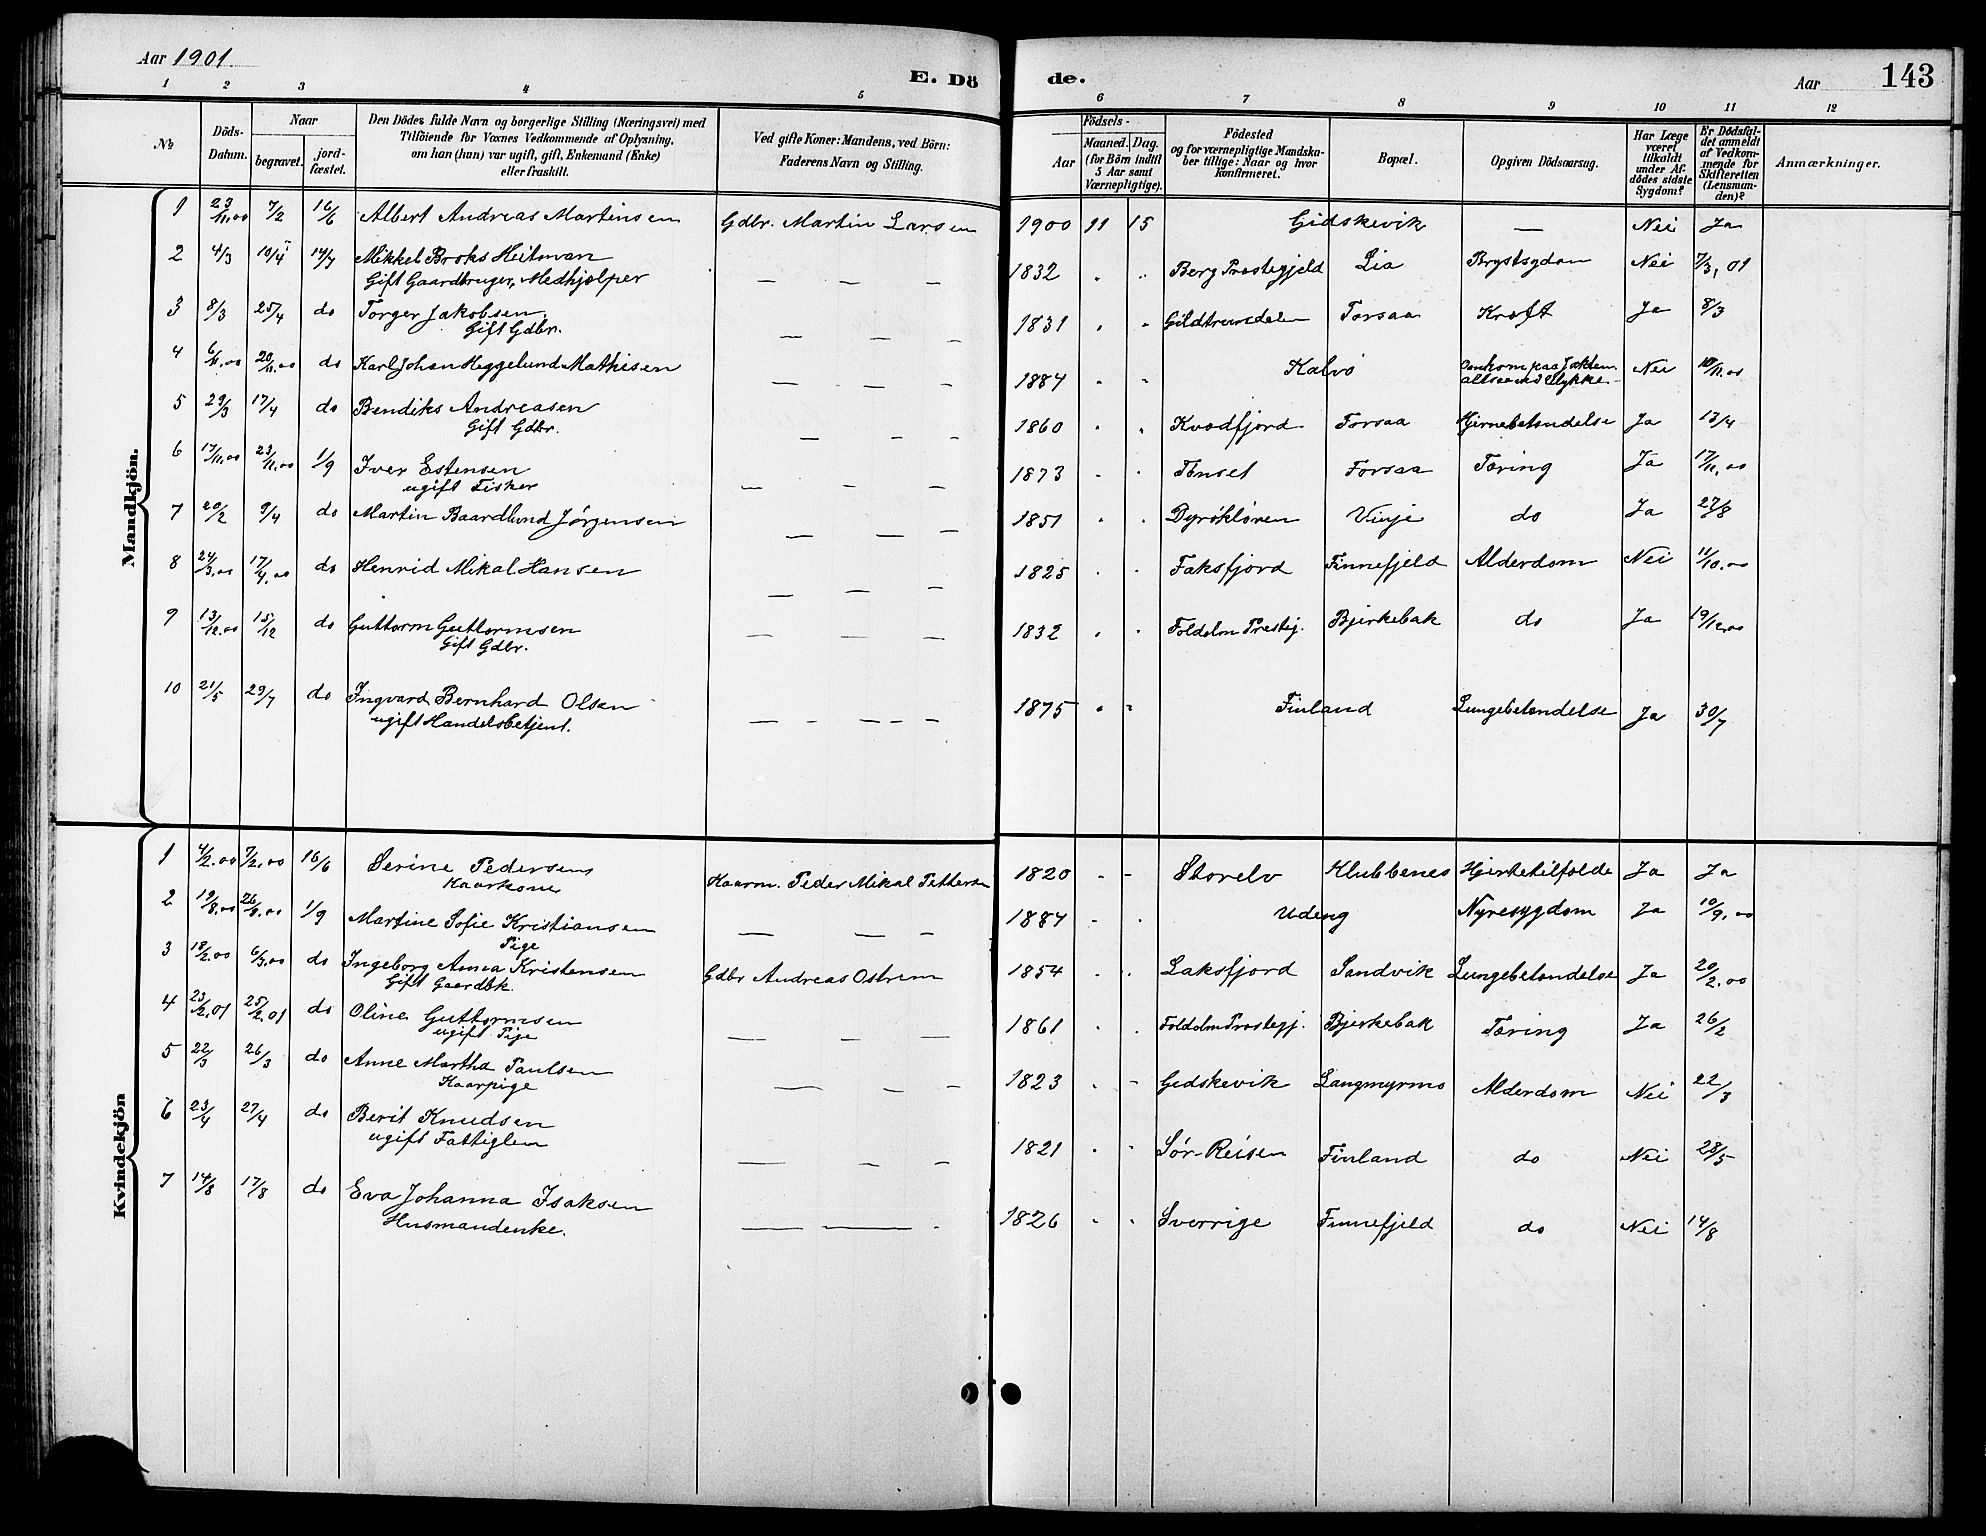 Aar 1901.
E. Dö de.
Aar 143
1 2 3 4 5 6 7 8 9 10 11 12
№
Döds-Datum.
Naar
begravet. jord-fæstet.
Den Dödes fulde Navn og borgerlige Stilling (Næringsvei) med
Tilföiende for Voxnes Vedkommende af Oplysning,
om han (hun) var ugift, gift, Enkemand (Enke)
eller fraskilt.
Ved gifte Koner: Mandens, ved Börn:
Faderens Navn og Stilling.
Födsels-
Aar Maaned. Dag.
(for Börn indtil
5 Aar samt
Værnepligtige).
Födested
og for værnepligtige Mandska-
ber tillige: Naar og hvor
konfirmeret.
Bopæl.
Opgiven Dödsaarsag.
Har Læge
været
tilkaldt
under Af-
dödes sidste
Sygdom?
Er Dödsfal-
det anmeldt
af Vedkom-
mende for
Skifteretten
(Lensman-
den)?
Anmærkninger.
Mandkjön.
1 23/11.00 7/2 16/6 Albert Andreas Martinsen Gdbr. Martin Larsen 1900 11 15 Gidskevik — Nei Ja
2 4/3 10/4 14/7 Mikkel Broks Heitman — — — 1832 " " Berg Præstegjeld Lia Brystsygdom Nei 7/3, 01
Gift Gaardbruger, Medhjælper
3 8/3 25/4 do Torger Jakobsen — — — 1831 " " Torsaa Kræft Ja 8/3
Gift Gdbr.
4 6/11.00 20/11.00 do Karl Johan Heggelund Mathisen — — — 1884 " " Kalvö Omkom paa Jakten Nei 10/11.00
altsaa ved Ulykke
5 29/3 17/4 do Bendiks Andreasen — — — 1860 " " Kvædfjord Forsaa Hjernebetændelse Ja 13/4
Gift Gdbr.
6 17/11.00 23/11.00 1/9 Iver Estensen — — — 1873 " " Tönset Forsaa Tæring Ja 17/11.00
ugift Fisker
7 20/2 9/4 do Martin Baardlund Jørgensen — — — 1851 " " Vinje do Ja 27/8
8 24/3.00 17/4.00 do Henrid Mikal Hansen — — — 1825 " " Faksfjord Finnefjeld Alderdom Nei 11/10.00
9 13/12.00 15/12 do Guttorm Guttormsen — — — 1832 " " Foldalm Præstegj. Bjerkebak do Ja 19/12.00
Gift Gdbr.
10 21/5 29/7 do Ingvard Bernhard Olsen — — — — 1875 " " Finland Lungebetændelse Ja 30/7
ugift Handelsbetjent.
Kvindekjön
1 4/2.00 7/2.00 16/6 Serine Pedersens Kaarm. Peder Mikal Pettersen 1820 - - Storelv Klubbenes Hjertetilfælde Ja Ja
Kaarkone
2 19/8.00 26/8.00 1/9 Martine Sofie Kristiansen — — — 1884 - " Udeng Nyresygdom Ja 10/9.00
Pige
3 18/2.00 6/3.00 do Ingeborg Anna Kristensen Gdbr Andreas Ostrem 1854 " " Laksfjord Sandvik Lungebetændelse Ja 20/2.00
Gift Gaardbk.
4 23/2.01 25/2.01 do Oline Guttormsen — — — 1861 " " Foldalm Præstegj. Bjerkebak Tæring Ja 26/2
ugift Pige
5 22/3 26/3 do Anne Martha Paulsen — — — 1823 " " Gidskevik Langmyrmo Alderdom Nei 22/3
Kaarpige
6 23/4 27/4 do Berit Knudsen — — — 1821 " " Sør-Reisen Finland do Nei 28/5
ugift Fattiglem
7 14/8 17/8 do Eva Johanna Isaksen — — " 1826 " " Sverrige Finnefjeld do Nei 14/8
Husmandenke.